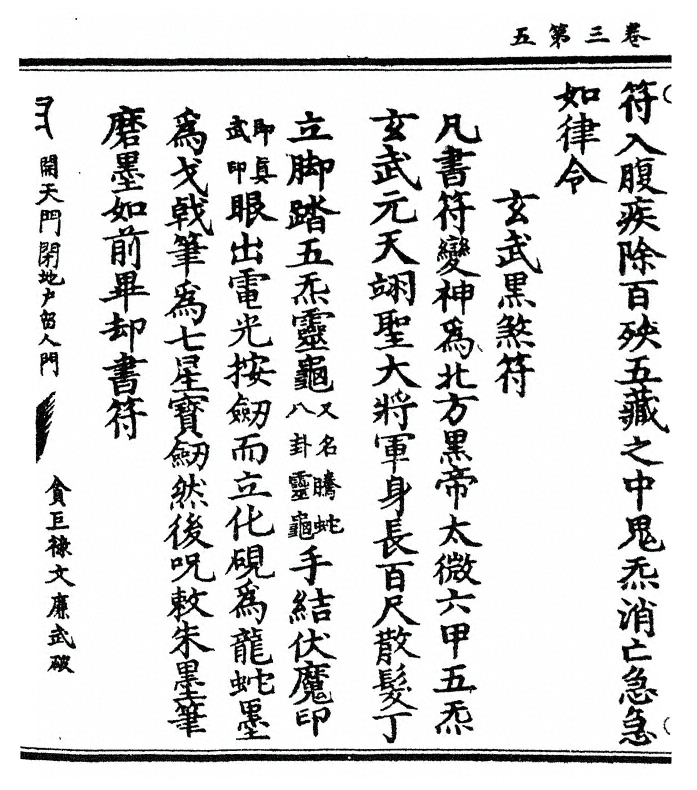 卷三第五
符入腹疾除百殃五藏之中鬼炁消亡急急
如律令
玄武黑煞符
凡書符變神為北方黑帝太微六甲五炁
玄武元天翊聖大將軍身長百尺散髮丁
立脚踏五炁靈龜又名騰蛇八卦靈龜手結伏魔印
即真武印眼出電光按劒而立化硯為龍蛇墨
為戈戟筆為七星寶劒然後呪敕朱墨筆
磨墨如前畢却書符
開天門閉地户留人門
貪巨祿文廉武破